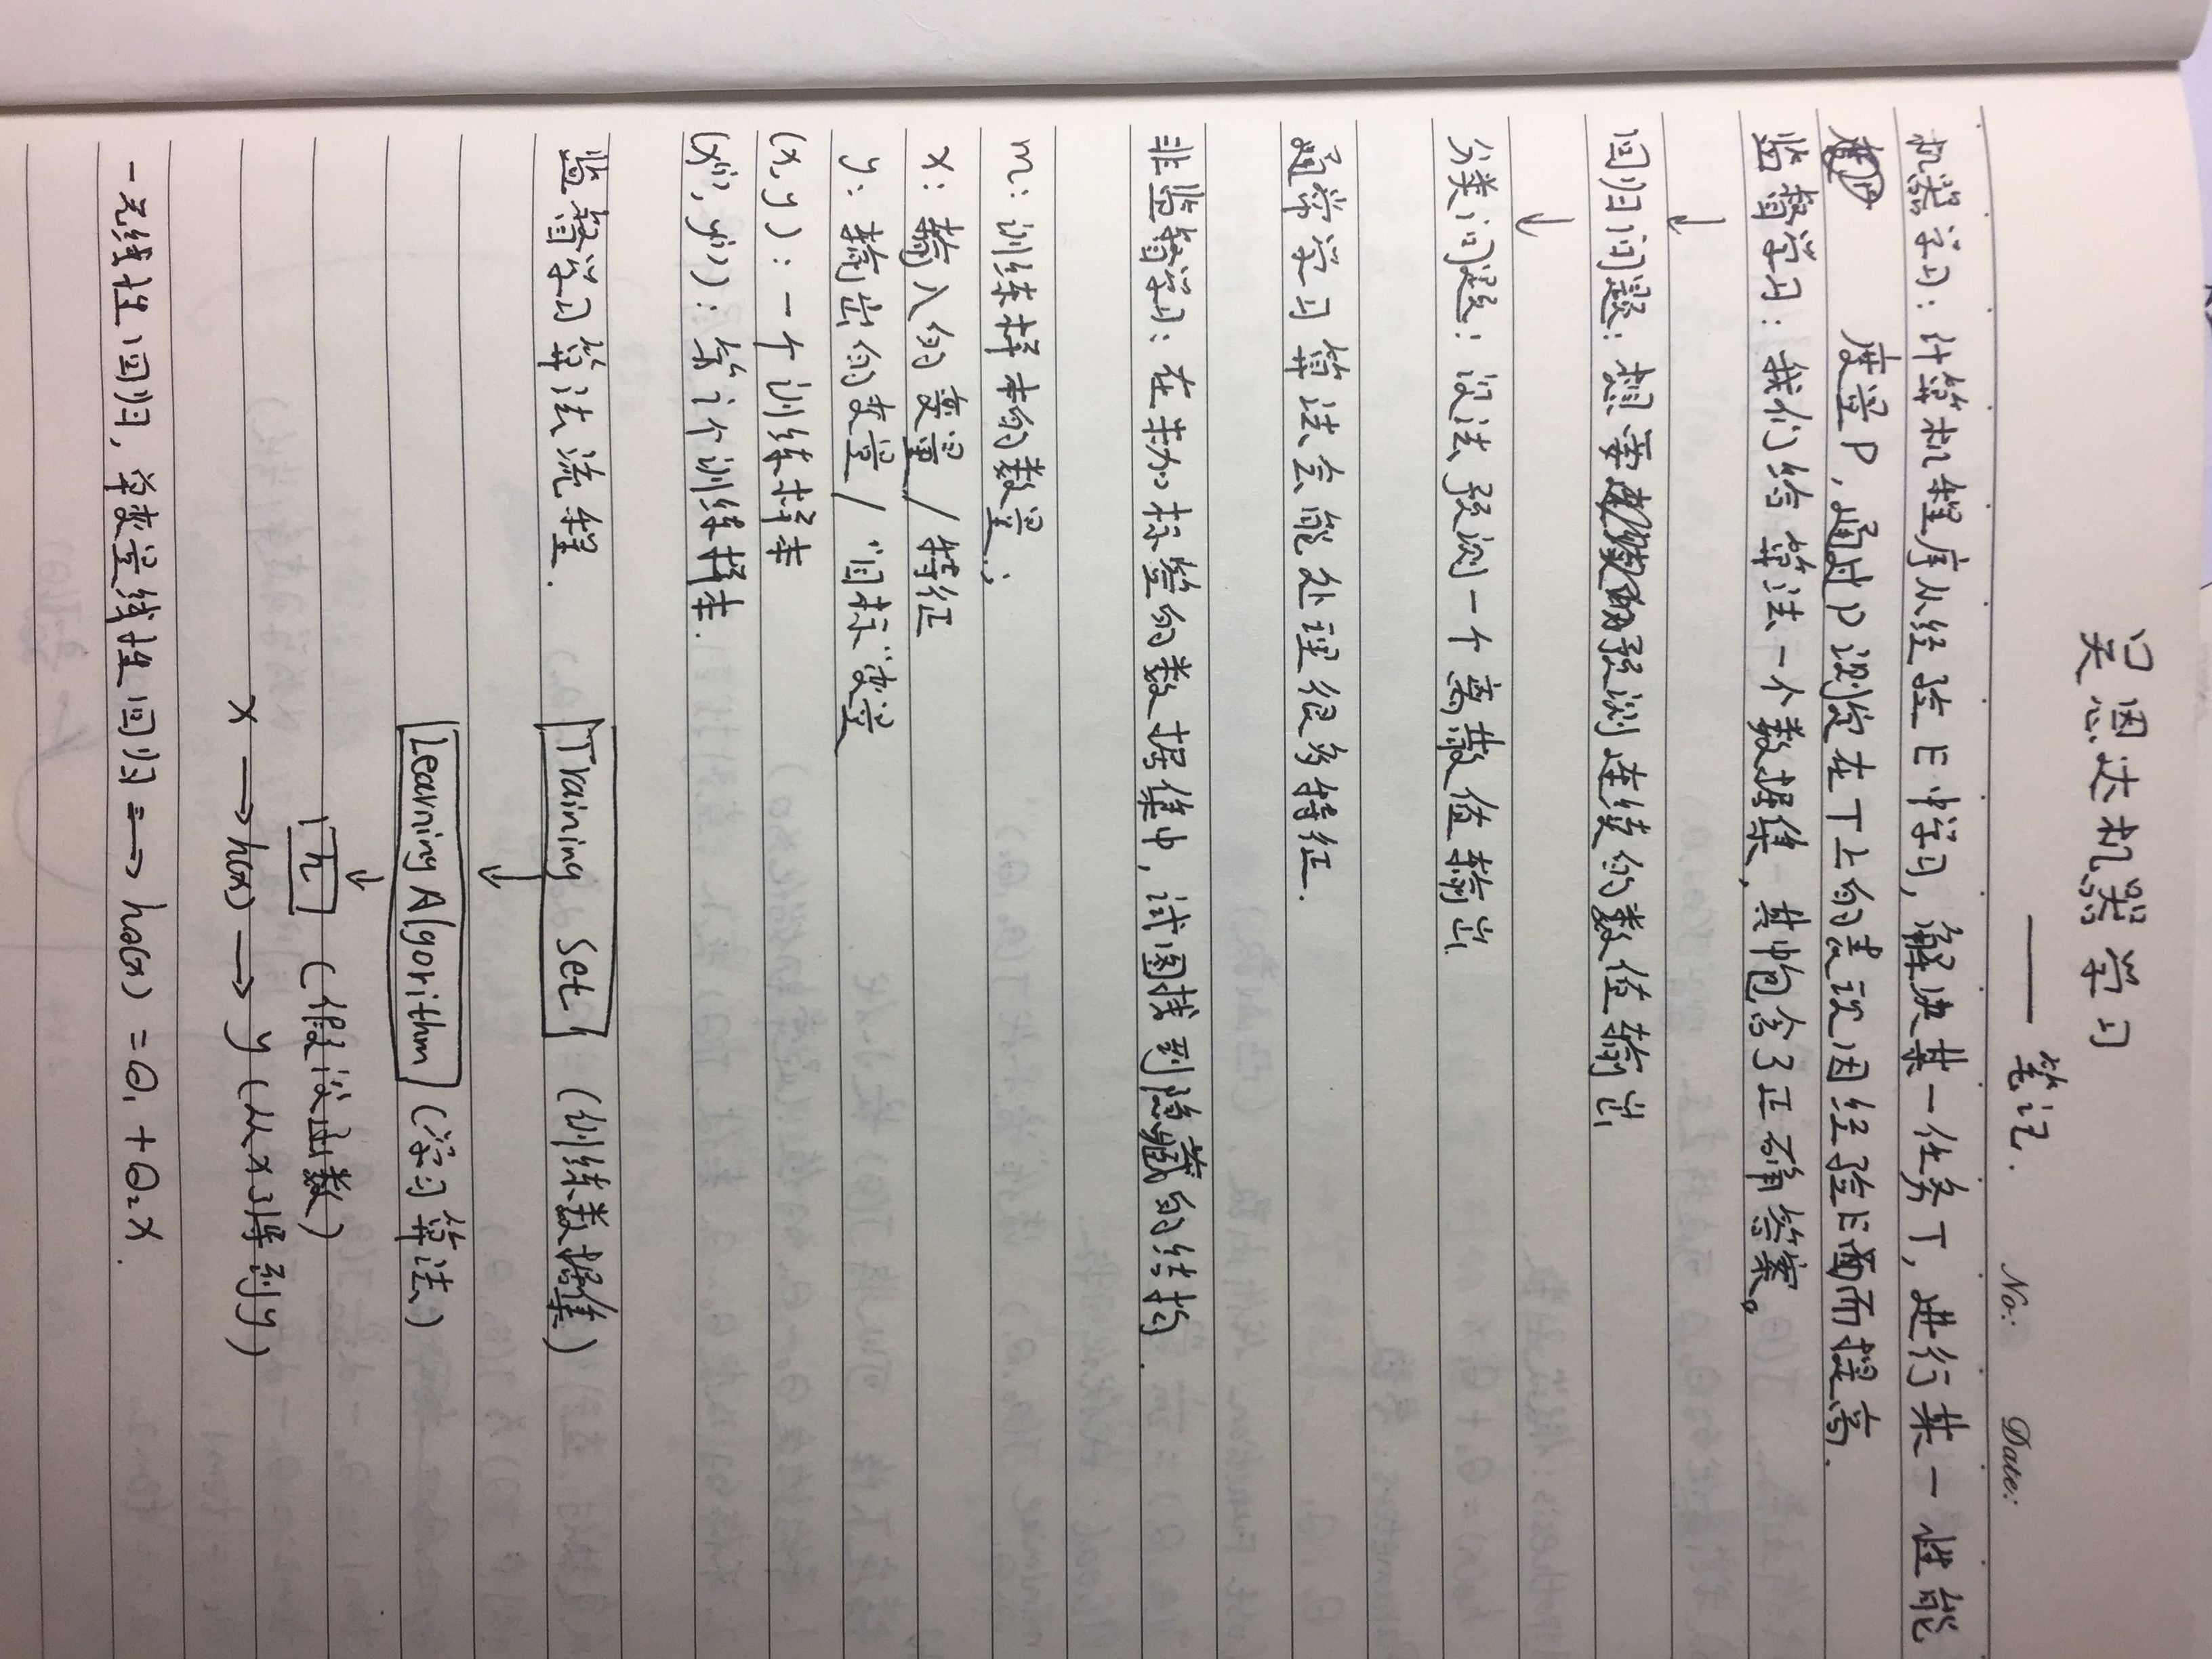 吴恩达机器学习
—— 笔记.
No.: Date:
机器学习：计算机程序从经验E中学习，解决某一任务T，进行某一性能
度量P，通过P测定在T上的表现因经验E而提高.
监督学习：我们给算法一个数据集，其中包含了正确答案。
↓
回归问题：想要预测连续的数值输出
↓
分类问题：设法预测一个离散值输出
通常学习算法会能处理很多特征.
非监督学习：在未加标签的数据集中，试图找到隐藏的结构.
m：训练样本的数量；
x：输入的变量/特征
y：输出的变量/"目标"变量
(x, y)：一个训练样本
(x⁽ⁱ⁾, y⁽ⁱ⁾)：第i个训练样本.
监督学习算法流程. Training Set (训练数据集)
↓
Learning Algorithm (学习算法)
↓
h (假设函数)
x → h(x) → y (从x得到y)
一元线性回归，单变量线性回归 ==> hθ(x) = θ₁ + θ₂x.